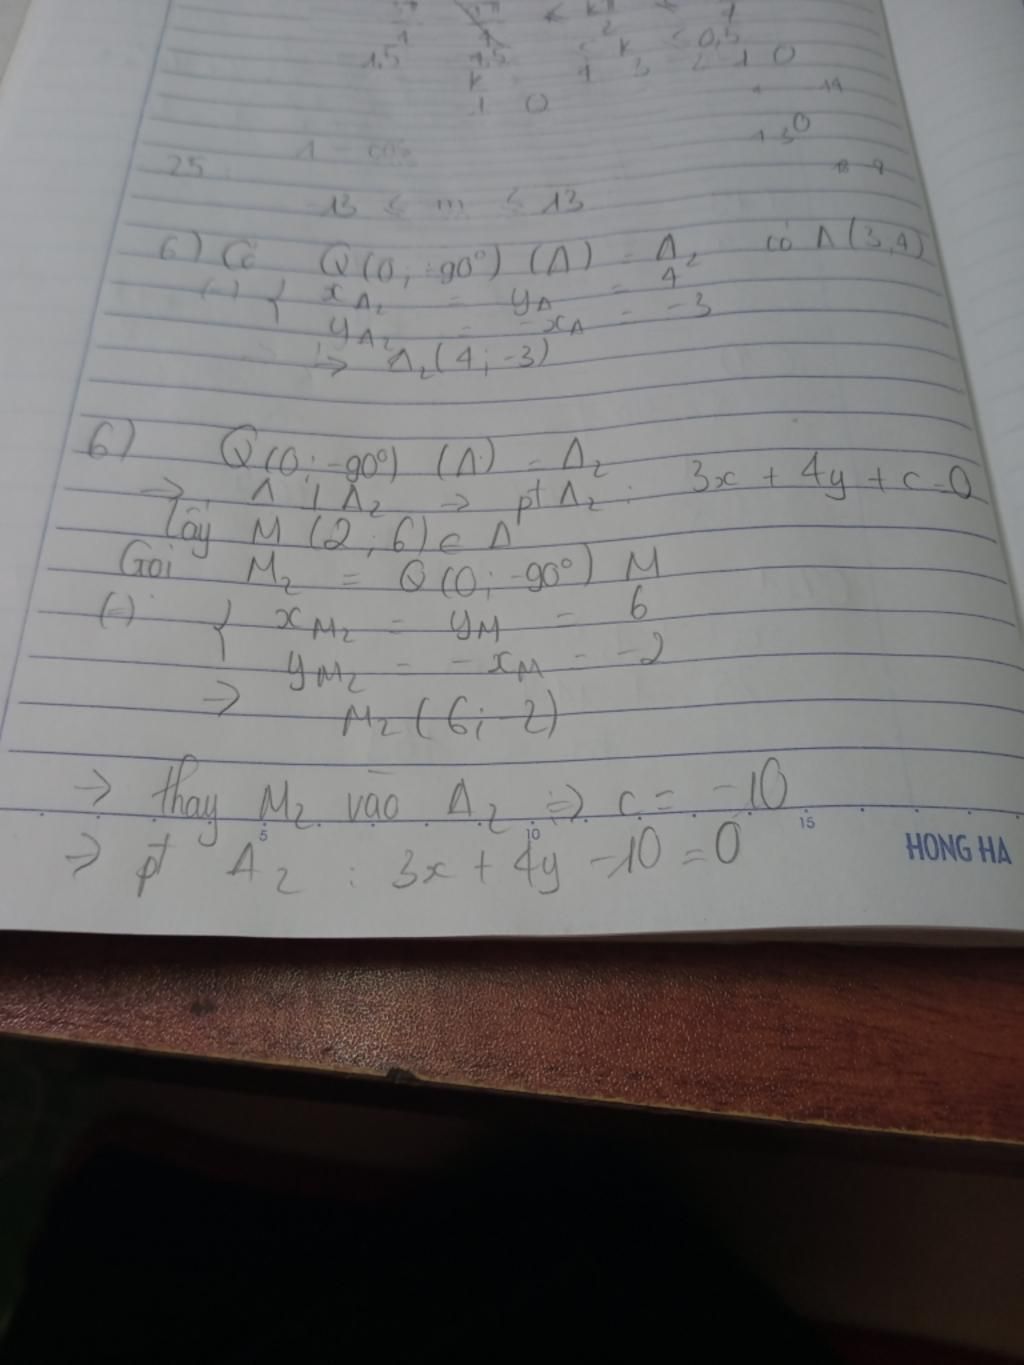 1,5 1,5 1 k 3 ≤ 0,5 2 1 0
k
1 0
1 - cos
130
25
13 ≤ m ≤ 13
6) Có Q(0; -90°) (A) = A₂ có A(3,4)
(-) { x A₂ = yA = 4
yA₂ = -xA = -3
→ A₂(4; -3)
6) Q(0; -90°) (Δ) = Δ₂
→ Δ ⊥ Δ₂ → pt Δ₂ : 3x + 4y + c = 0
Lấy M (2; 6) ∈ Δ
Gọi M₂ = Q(0; -90°) M
(=) { xM₂ = yM = 6
yM₂ = -xM = -2
→ M₂ (6; -2)
→ thay M₂ vào Δ₂ => c = -10
5 10 15
→ pt Δ₂ : 3x + 4y - 10 = 0
HONG HA